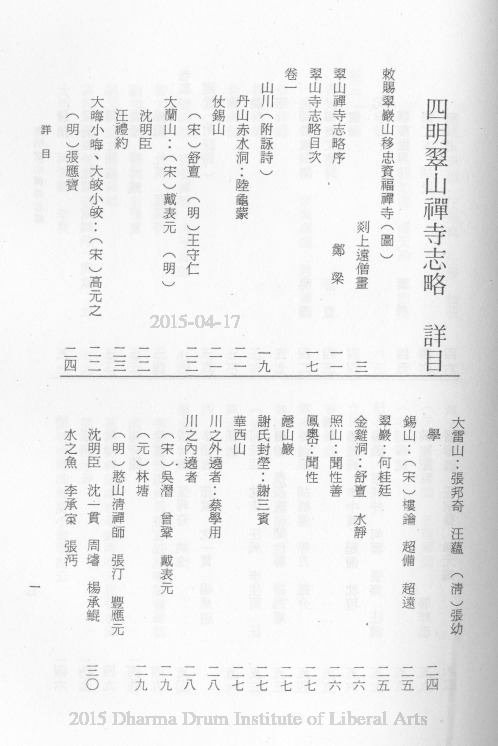 四明翠山禪寺志略　詳目
敕賜翠巖山移忠資福禪寺（圖）
剡上遠僧畫　三
翠山禪寺志略序　鄭　梁　一一
翠山寺志略目次　一七
卷一
山川（附詠詩）　一九
丹山赤水洞：陸龜蒙　二一
仗錫山　二一
（宋）舒亶　（明）王守仁　二二
大蘭山：（宋）戴表元　（明）
沈明臣　二二
汪禮約　二三
大晦小晦、大皎小皎：（宋）高元之　二二
（明）張應寶　二四
詳目
大雷山：張邦奇　汪蘊　（清）張幼
學　二四
錫山：（宋）樓論　超備　超遠　二五
翠巖：何桂廷　二五
金雞洞：舒亶　水靜　二六
照山：聞性善　二六
鳳嶴：聞性　二七
隱山巖　二七
謝氏封塋：謝三賓　二七
華西山　二七
川之外遶者：蔡學用　二八
川之內遶者　二八
（宋）吳潛　曾鞏　戴表元　二九
（元）林塘　二九
（明）憨山清禪師　張汀　豐應元
沈明臣　沈一貫　周璿　楊承鯤　三〇
水之魚　李承寀　張沔
一
2015-04-17
2015 Dharma Drum Institute of Liberal Arts